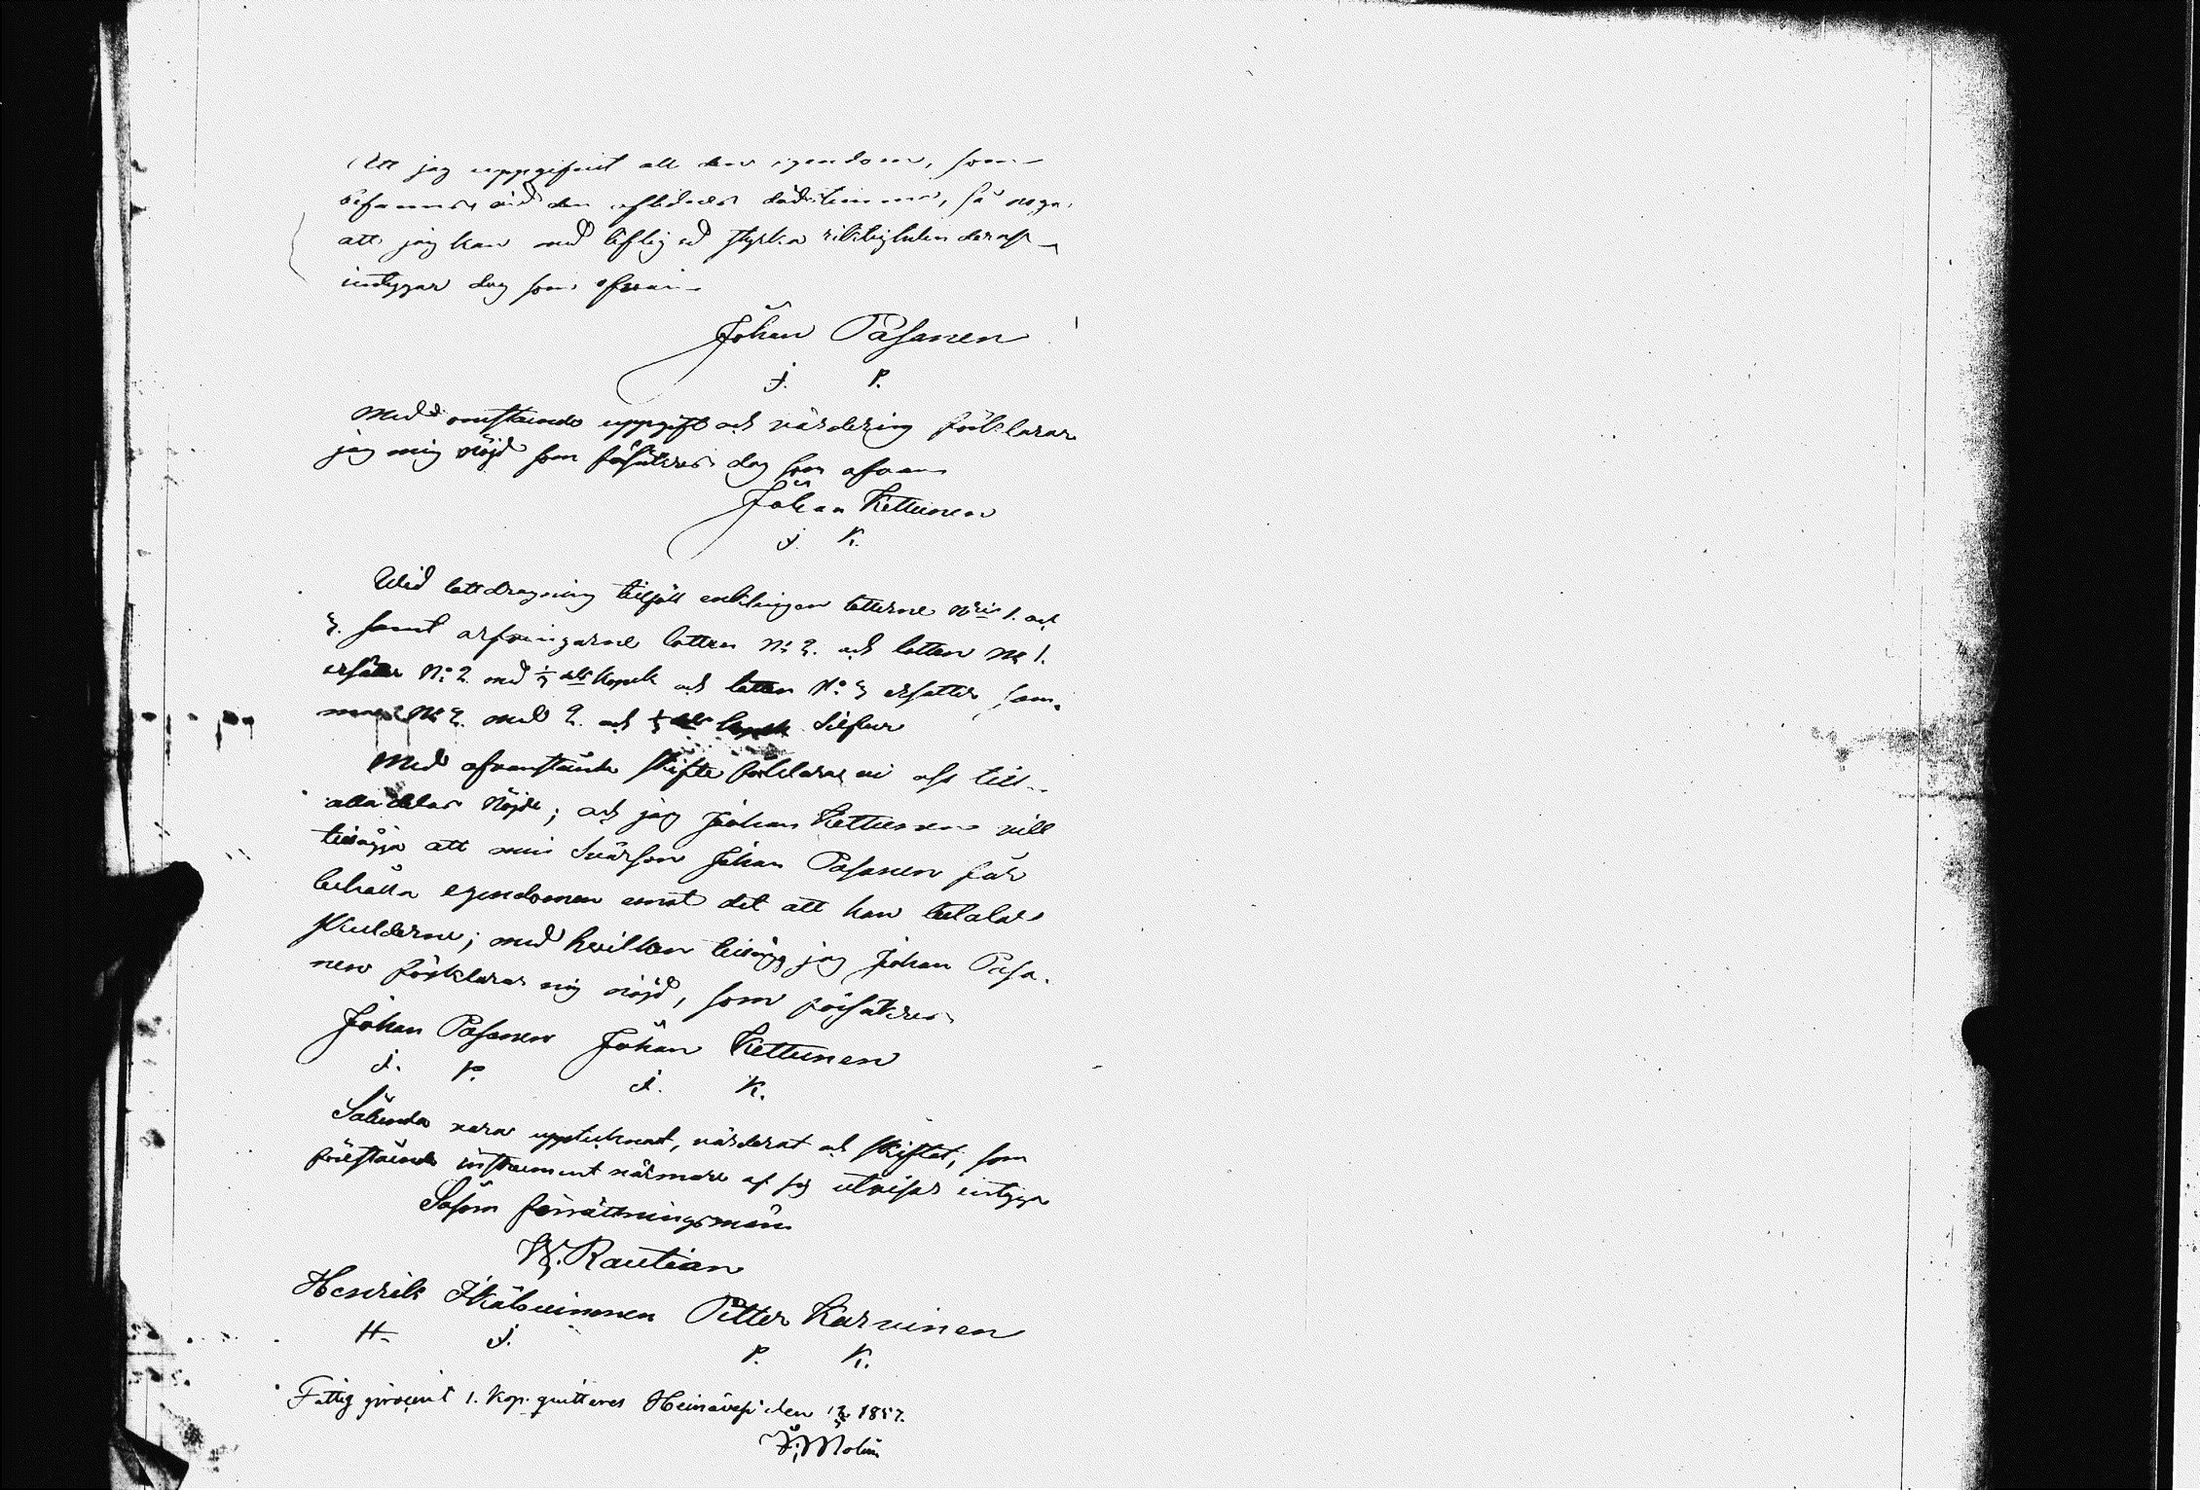 Att jag uppgifvit all den egendom, som
befanns vid den aflidnes dödstimma, så noga
att jag kan med liflig ed styrka riktigheten deraf
intygar dag som ofvan
Johan Pasanen
J. P.
Med omstående uppgift och värdering förklarar
jag mig nöjd som försäkras dag som ofvan
Johan Kettunen
J. K.
Wid lottdragning tillföll enklingen lotterne N:ris 1. och
3. samt arfvingarne lotten N:o 2. och lotten No 1.
ersätter N:o 2. med 1/3 dels kopek och lotten N:o 3 ersätter sam-
ma No 2. med 2. och 1/3 dels kopek Silfver
Med ofvanstående skifte förklara vi oss till
alla delar nöjde; och jag Johan Kettunen vill
tillägga att min Svärson Johan Pasanen får
behålla egendomen emot det att han betalar
skulderne; med hvilken tillägg jag Johan Pasa-
nen förklarar mig nöjd, som försäkras
Johan Pasanen Johan Kettunen
J. P. J. K.
Sålunda vara upptecknat, värderat och skiftat, som
förestående instrument närmare af sig utvisar intyga
Såsom förrättningsmän
W. Rautian
Henrik Ikäheimonen Petter Karvinen
H. J.
P. K.
Fattig procent 1. Kop. quitteres Heinävesi den 1857.
Molin